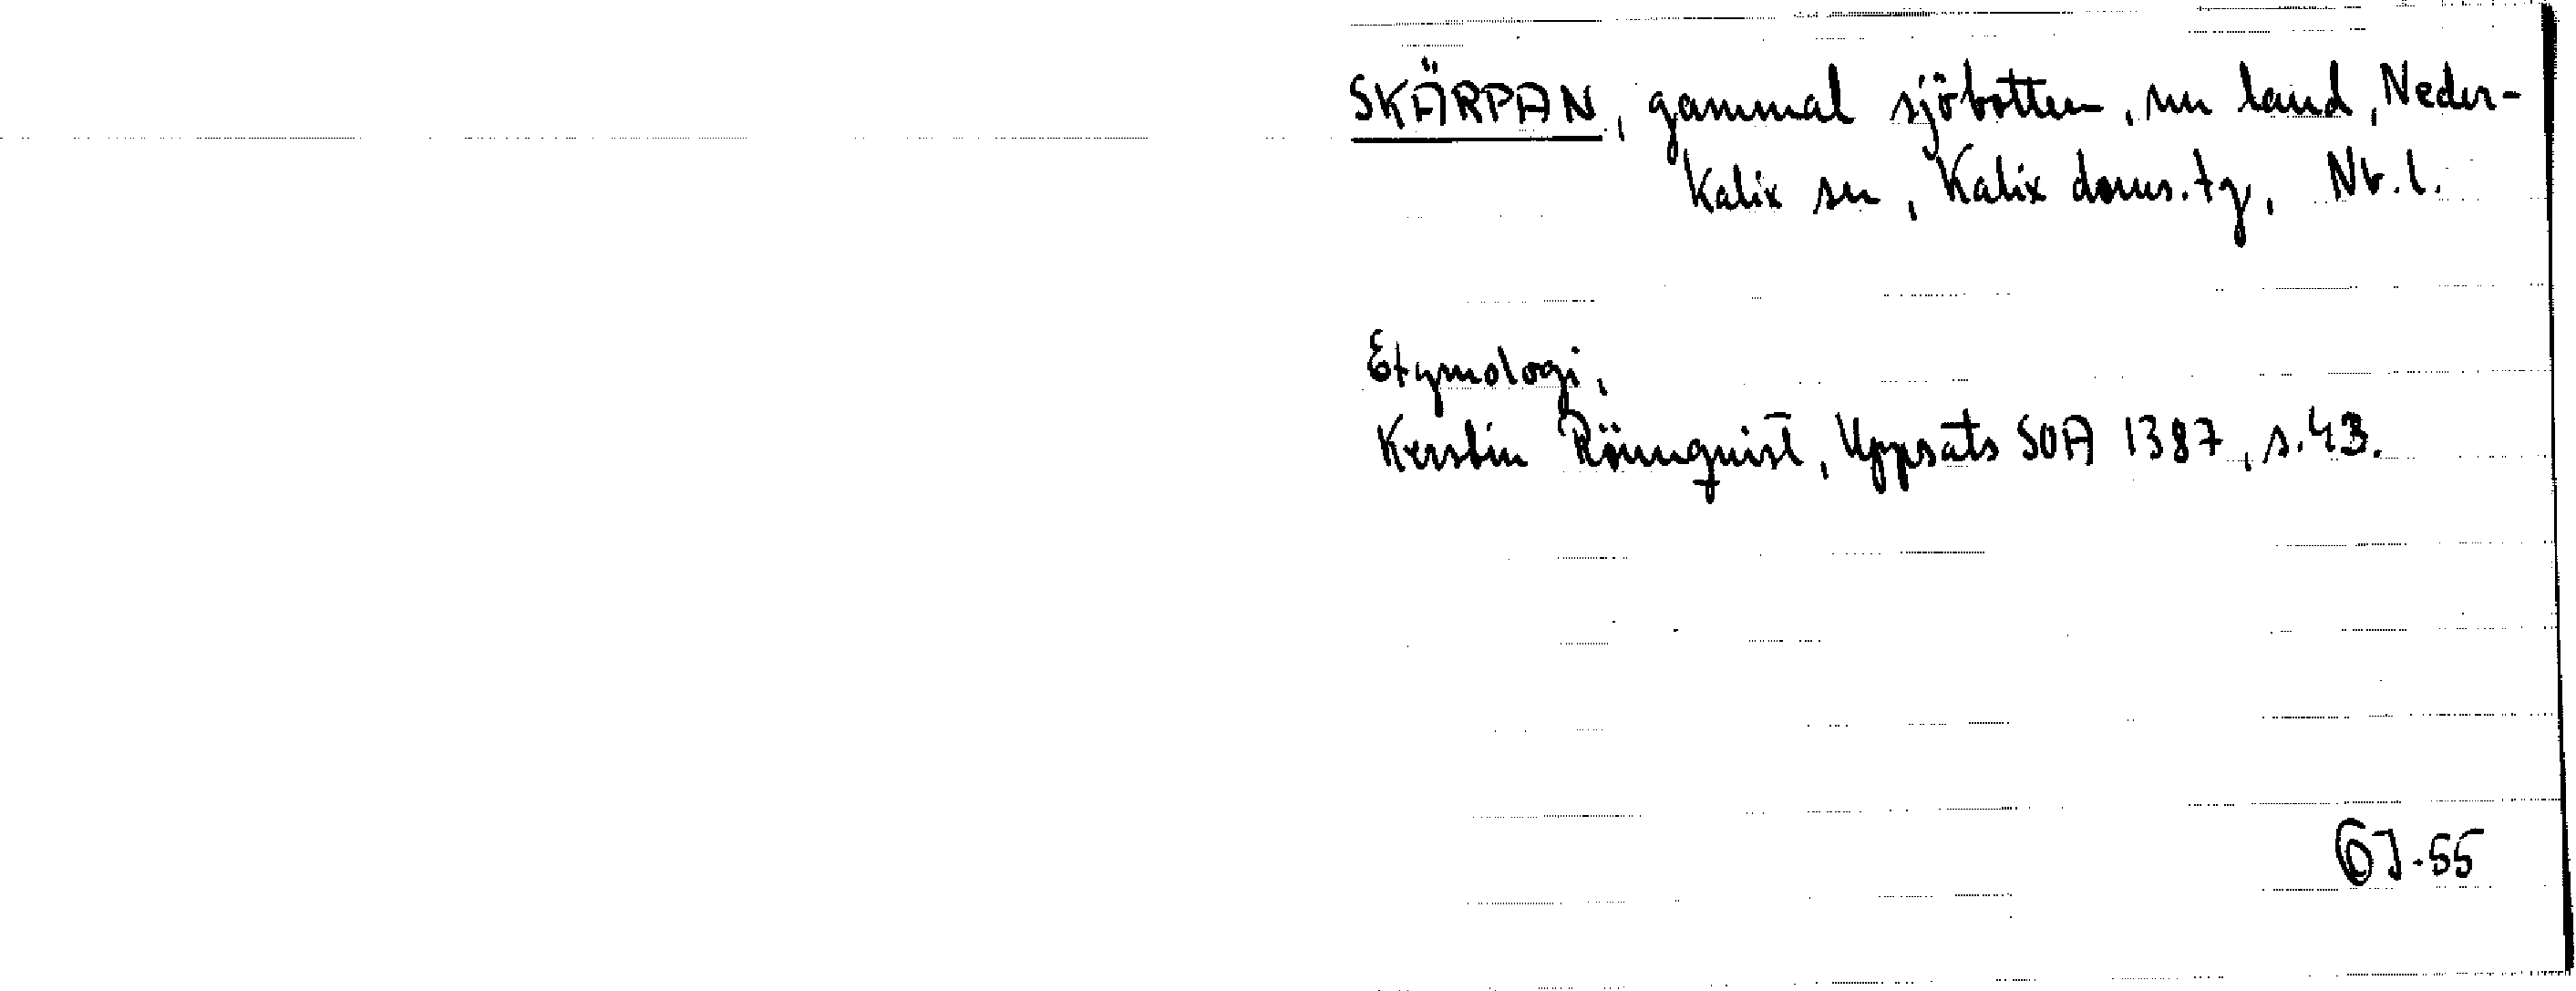 SKÄRPAN, gammal sjöbotten, nu land, Neder-
Kalix sn, Kalix doms.tg, Nb.l.
Etymologi,
Kerstin Rönnquist, Uppsats SOA 1387, s.43.
GJ-55